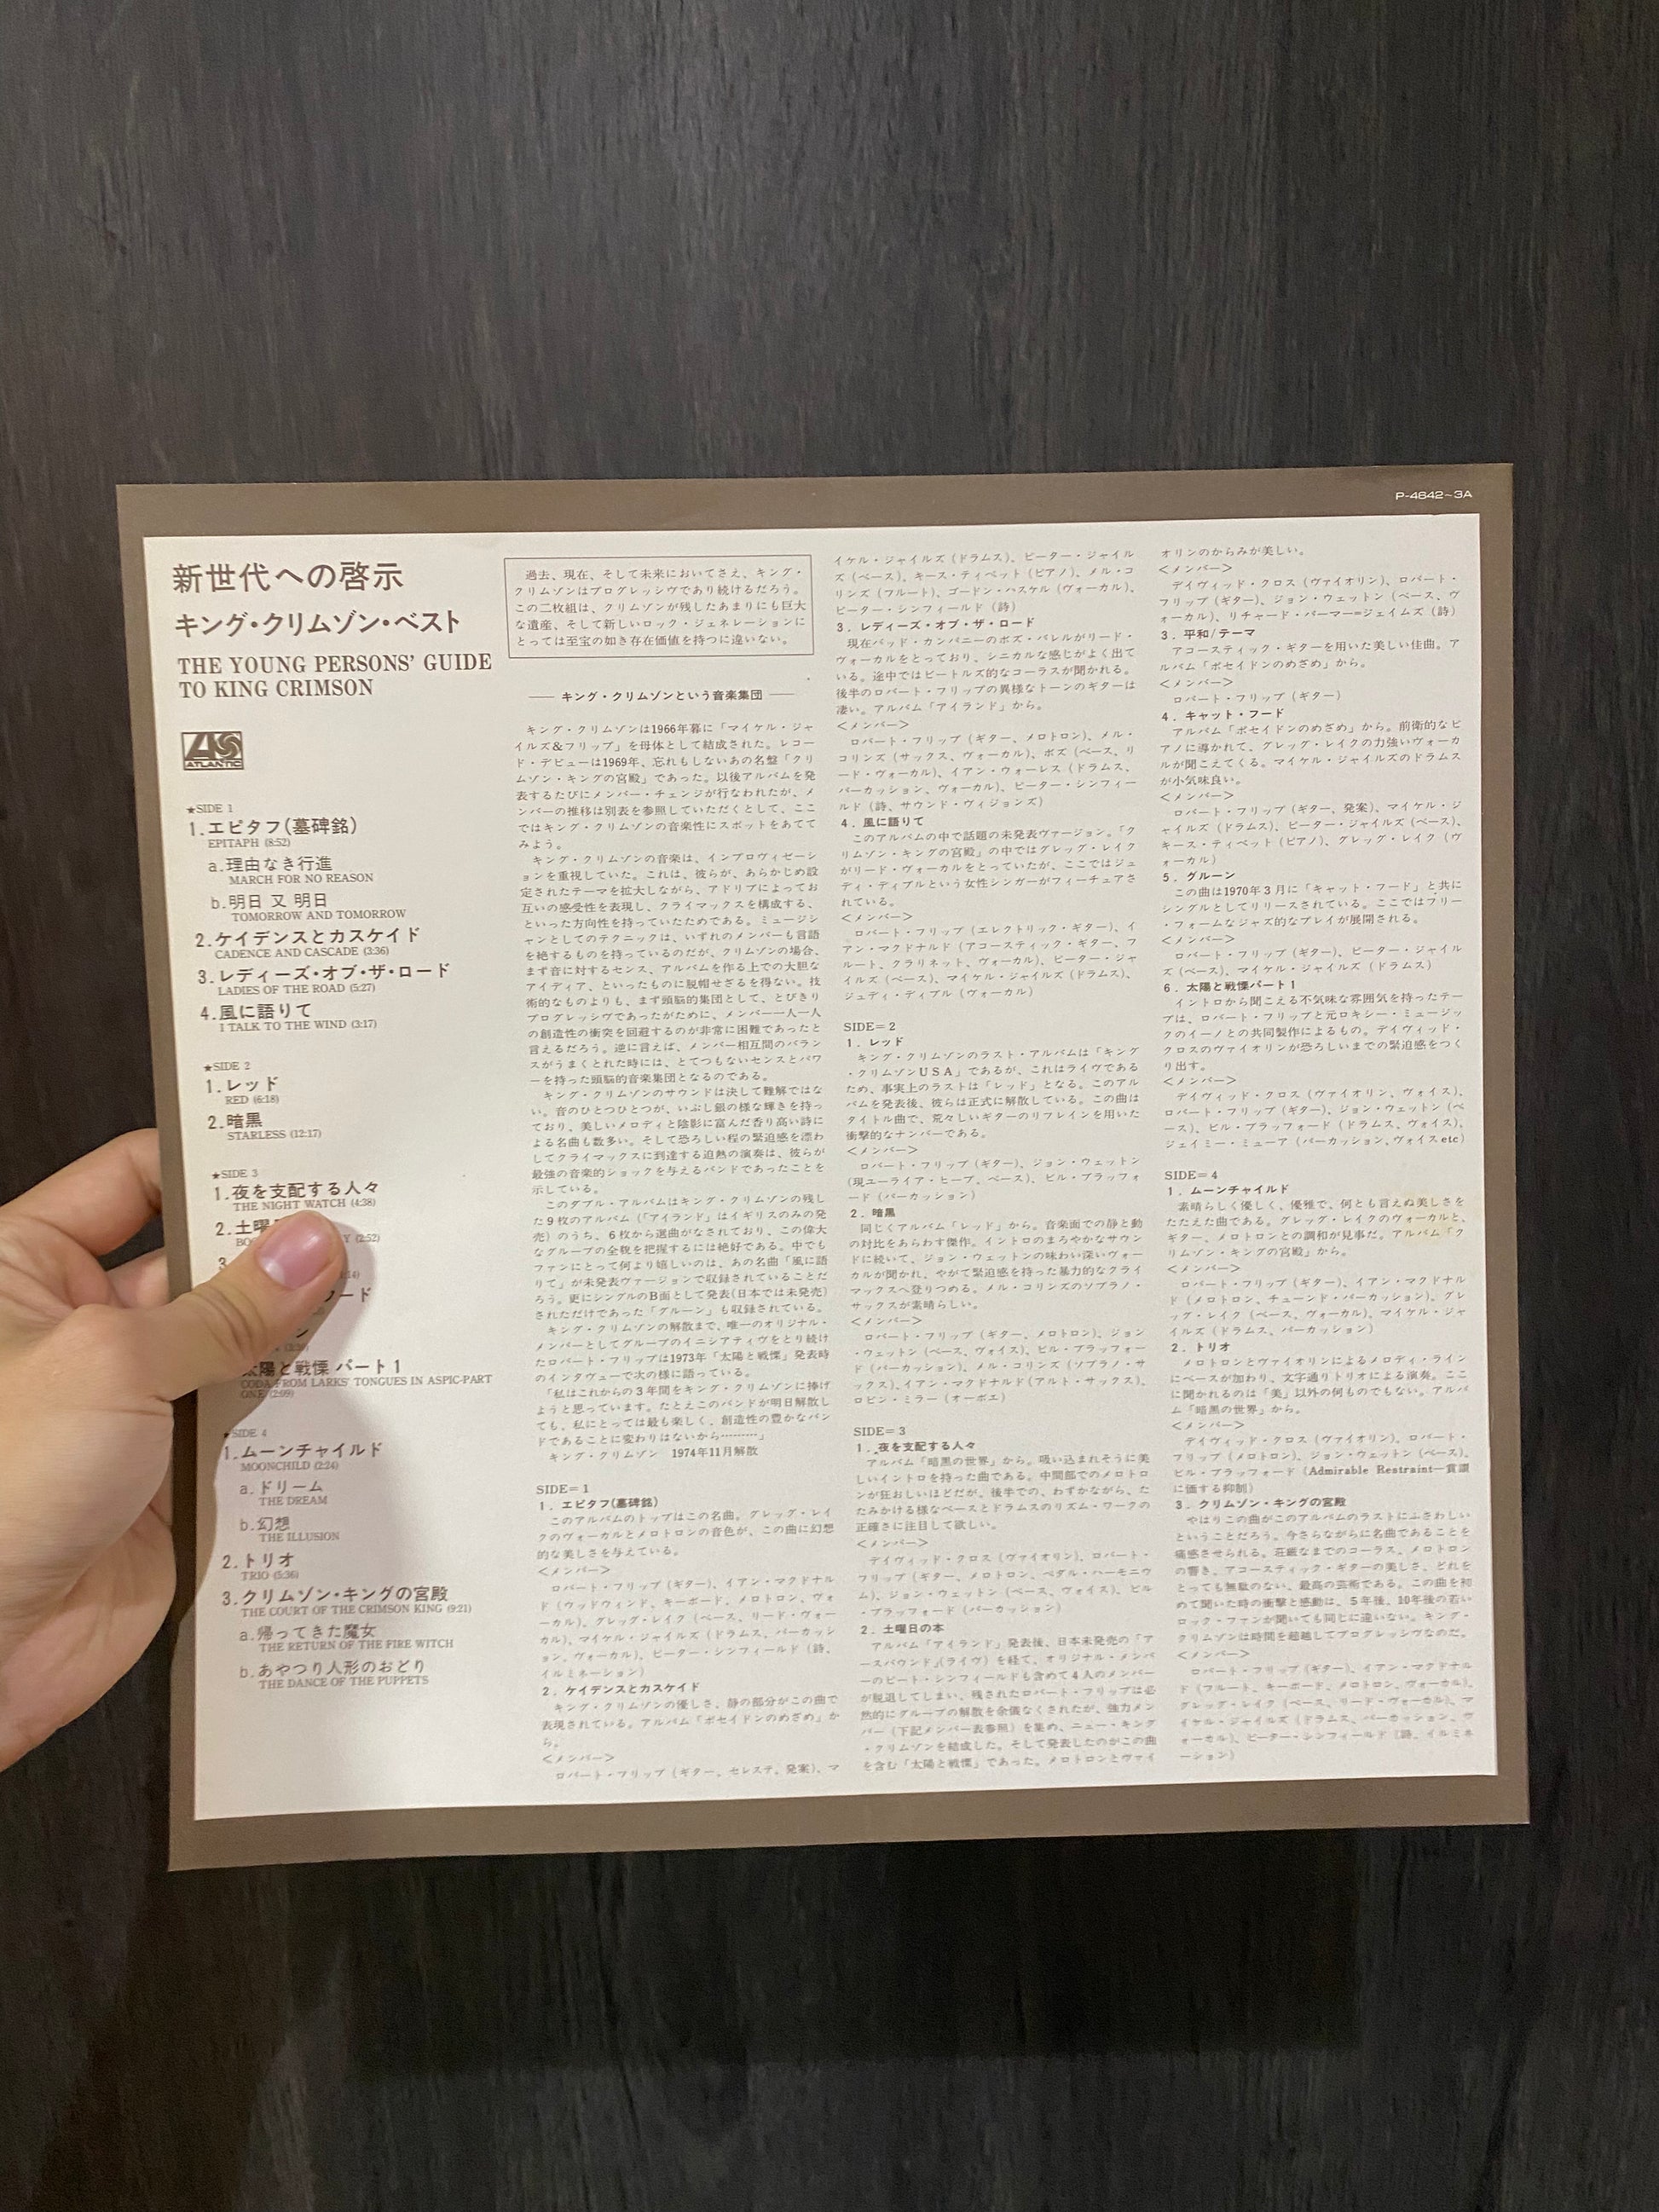 P-4642~3A
新世代への啓示
キング・クリムゾン・ベスト
THE YOUNG PERSONS' GUIDE
TO KING CRIMSON
ATLANTIC
★SIDE 1
1.エピタフ(墓碑銘)
EPITAPH (8:52)
a.理由なき行進
MARCH FOR NO REASON
b.明日 又 明日
TOMORROW AND TOMORROW
2.ケイデンスとカスケイド
CADENCE AND CASCADE (3:36)
3.レディーズ・オブ・ザ・ロード
LADIES OF THE ROAD (5:27)
4.風に語りて
I TALK TO THE WIND (3:17)
★SIDE 2
1.レッド
RED (6:18)
2.暗黒
STARLESS (12:17)
★SIDE 3
1.夜を支配する人々
THE NIGHT WATCH (4:38)
2.土曜
Y (2:52)
3
ード
ン
太陽と戦慄 パート1
CODA FROM LARKS' TONGUES IN ASPIC-PART
ONE (2:09)
SIDE 4
1.ムーンチャイルド
MOONCHILD (2:24)
a.ドリーム
THE DREAM
b.幻想
THE ILLUSION
2.トリオ
TRIO (5:36)
3.クリムゾン・キングの宮殿
THE COURT OF THE CRIMSON KING (9:21)
a.帰ってきた魔女
THE RETURN OF THE FIRE WITCH
b.あやつり人形のおどり
THE DANCE OF THE PUPPETS
過去、現在、そして未来においてさえ、キング・
クリムゾンはプログレッシヴであり続けるだろう。
この二枚組は、クリムゾンが残したあまりにも巨大
な遺産、そして新しいロック・ジェネレーションに
とっては至宝の如き存在価値を持つに違いない。
── キング・クリムゾンという音楽集団 ──
キング・クリムゾンは1966年暮に「マイケル・ジャ
イルズ&フリップ」を母体として結成された。レコー
ド・デビューは1969年、忘れもしないあの名盤「クリ
ムゾン・キングの宮殿」であった。以後アルバムを発
表するたびにメンバー・チェンジが行なわれたが、メ
ンバーの推移は別表を参照していただくとして、ここ
ではキング・クリムゾンの音楽性にスポットをあてて
みよう。
キング・クリムゾンの音楽は、インプロヴィゼーシ
ョンを重視していた。これは、彼らが、あらかじめ設
定されたテーマを拡大しながら、アドリブによってお
互いの感受性を表現し、クライマックスを構成する、
といった方向性を持っていたためである。ミュージシ
ャンとしてのテクニックは、いずれのメンバーも言語
を絶するものを持っているのだが、クリムゾンの場合、
まず音に対するセンス、アルバムを作る上での大胆な
アイディア、といったものに脱帽せざるを得ない。技
術的なものよりも、まず頭脳的集団として、とびきり
プログレッシヴであったがために、メンバー一人一人
の創造性の衝突を回避するのが非常に困難であったと
言えるだろう。逆に言えば、メンバー相互間のバラン
スがうまくとれた時には、とてつもないセンスとパワ
ーを持った頭脳的音楽集団となるのである。
キング・クリムゾンのサウンドは決して難解ではな
い。音のひとつひとつが、いぶし銀の様な輝きを持っ
ており、美しいメロディと陰影に富んだ香り高い詩に
よる名曲も数多い。そして恐ろしい程の緊迫感を漂わ
してクライマックスに到達する迫熱の演奏は、彼らが
最強の音楽的ショックを与えるバンドであったことを
示している。
このダブル・アルバムはキング・クリムゾンの残し
た9枚のアルバム(「アイランド」はイギリスのみの発
売)のうち、6枚から選曲がなされており、この偉大
なグループの全貌を把握するには絶好である。中でも
ファンにとって何より嬉しいのは、あの名曲「風に語
りて」が未発表ヴァージョンで収録されていることだ
ろう。更にシングルのB面として発表(日本では未発売)
されただけであった「グルーン」も収録されている。
キング・クリムゾンの解散まで、唯一のオリジナル・
メンバーとしてグループのイニシアティヴをとり続け
たロバート・フリップは1973年「太陽と戦慄」発表時
のインタヴューで次の様に語っている。
「私はこれからの3年間をキング・クリムゾンに捧げ
ようと思っています。たとえこのバンドが明日解散し
ても、私にとっては最も楽しく、創造性の豊かなバン
ドであることに変わりはないから………」
キング・クリムゾン 1974年11月解散
SIDE=1
1. エピタフ(墓碑銘)
このアルバムのトップはこの名曲。グレッグ・レイ
クのヴォーカルとメロトロンの音色が、この曲に幻想
的な美しさを与えている。
<メンバー>
ロバート・フリップ (ギター)、イアン・マクドナル
ド (ウッドウィンド、キーボード、メロトロン、ヴォ
ーカル)、グレッグ・レイク (ベース、リード・ヴォー
カル)、マイケル・ジャイルズ (ドラムス、パーカッシ
ョン、ヴォーカル)、ピーター・シンフィールド (詩、
イルミネーション)
2. ケイデンスとカスケイド
キング・クリムゾンの優しさ、静の部分がこの曲で
表現されている。アルバム「ポセイドンのめざめ」か
ら。
<メンバー>
ロバート・フリップ (ギター、セレステ、発案)、マ
イケル・ジャイルズ (ドラムス)、ピーター・ジャイル
ズ (ベース)、キース・ティペット (ピアノ)、メル・コ
リンズ (フルート)、ゴードン・ハスケル (ヴォーカル)、
ピーター・シンフィールド (詩)
3. レディーズ・オブ・ザ・ロード
現在バッド・カンパニーのボズ・バレルがリード・
ヴォーカルをとっており、シニカルな感じがよく出て
いる。途中ではビートルズ的なコーラスが聞かれる。
後半のロバート・フリップの異様なトーンのギターは
凄い。アルバム「アイランド」から。
<メンバー>
ロバート・フリップ (ギター、メロトロン)、メル・
コリンズ (サックス、ヴォーカル)、ボズ (ベース、リ
ード・ヴォーカル)、イアン・ウォーレス (ドラムス、
パーカッション、ヴォーカル)、ピーター・シンフィー
ルド (詩、サウンド・ヴィジョンズ)
4. 風に語りて
このアルバムの中で話題の未発表ヴァージョン。「ク
リムゾン・キングの宮殿」の中ではグレッグ・レイク
がリード・ヴォーカルをとっていたが、ここではジュ
ディ・ディブルという女性シンガーがフィーチュアさ
れている。
<メンバー>
ロバート・フリップ (エレクトリック・ギター)、イ
アン・マクドナルド (アコースティック・ギター、フ
ルート、クラリネット、ヴォーカル)、ピーター・ジャ
イルズ (ベース)、マイケル・ジャイルズ (ドラムス)、
ジュディ・ディブル (ヴォーカル)
SIDE=2
1. レッド
キング・クリムゾンのラスト・アルバムは「キング
・クリムゾンUSA」であるが、これはライヴである
ため、事実上のラストは「レッド」となる。このアル
バムを発表後、彼らは正式に解散している。この曲は
タイトル曲で、荒々しいギターのリフレインを用いた
衝撃的なナンバーである。
<メンバー>
ロバート・フリップ (ギター)、ジョン・ウェットン
(現ユーライア・ヒープ、ベース)、ビル・ブラッフォ
ード (パーカッション)
2. 暗黒
同じくアルバム「レッド」から。音楽面での静と動
の対比をあらわす傑作。イントロのまろやかなサウン
ドに続いて、ジョン・ウェットンの味わい深いヴォー
カルが聞かれ、やがて緊迫感を持った暴力的なクライ
マックスへ登りつめる。メル・コリンズのソプラノ・
サックスが素晴らしい。
<メンバー>
ロバート・フリップ (ギター、メロトロン)、ジョン
・ウェットン (ベース、ヴォイス)、ビル・ブラッフォー
ド (パーカッション)、メル・コリンズ (ソプラノ・サ
ックス)、イアン・マクドナルド (アルト・サックス)、
ロビン・ミラー (オーボエ)
SIDE=3
1. 夜を支配する人々
アルバム「暗黒の世界」から。吸い込まれそうに美
しいイントロを持った曲である。中間部でのメロトロ
ンが狂おしいほどだが、後半での、わずかながら、た
たみかける様なベースとドラムスのリズム・ワークの
正確さに注目して欲しい。
<メンバー>
デイヴィッド・クロス (ヴァイオリン)、ロバート・
フリップ (ギター、メロトロン、ペダル・ハーモニウ
ム)、ジョン・ウェットン (ベース、ヴォイス)、ビル
・ブラッフォード (パーカッション)
2. 土曜日の本
アルバム「アイランド」発表後、日本未発売の「ア
ースバウンド」(ライヴ) を経て、オリジナル・メンバ
ーのピート・シンフィールドも含めて4人のメンバー
が脱退してしまい、残されたロバート・フリップは必
然的にグループの解散を余儀なくされたが、強力メン
バー (下記メンバー表参照) を集め、ニュー・キング
・クリムゾンを結成した。そして発表したのがこの曲
を含む「太陽と戦慄」であった。メロトロンとヴァイ
オリンのからみが美しい。
<メンバー>
デイヴィッド・クロス (ヴァイオリン)、ロバート・
フリップ (ギター)、ジョン・ウェットン (ベース、ヴ
ォーカル)、リチャード・パーマー=ジェイムズ (詩)
3. 平和/テーマ
アコースティック・ギターを用いた美しい佳曲。ア
ルバム「ポセイドンのめざめ」から。
<メンバー>
ロバート・フリップ (ギター)
4. キャット・フード
アルバム「ポセイドンのめざめ」から。前衛的なピ
アノに導かれて、グレッグ・レイクの力強いヴォーカ
ルが聞こえてくる。マイケル・ジャイルズのドラムス
が小気味良い。
<メンバー>
ロバート・フリップ (ギター、発案)、マイケル・ジ
ャイルズ (ドラムス)、ピーター・ジャイルズ (ベース)、
キース・ティペット (ピアノ)、グレッグ・レイク (ヴ
ォーカル)
5. グルーン
この曲は1970年3月に「キャット・フード」と共に
シングルとしてリリースされている。ここではフリー
・フォームなジャズ的なプレイが展開される。
<メンバー>
ロバート・フリップ (ギター)、ピーター・ジャイル
ズ (ベース)、マイケル・ジャイルズ (ドラムス)
6. 太陽と戦慄パート1
イントロから聞こえる不気味な雰囲気を持ったテー
プは、ロバート・フリップと元ロキシー・ミュージッ
クのイーノとの共同製作によるもの。デイヴィッド・
クロスのヴァイオリンが恐ろしいまでの緊迫感をつく
り出す。
<メンバー>
デイヴィッド・クロス (ヴァイオリン、ヴォイス)、
ロバート・フリップ (ギター)、ジョン・ウェットン (ベ
ース)、ビル・ブラッフォード (ドラムス、ヴォイス)、
ジェイミー・ミューア (パーカッション、ヴォイスetc)
SIDE=4
1. ムーンチャイルド
素晴らしく優しく、優雅で、何とも言えぬ美しさを
たたえた曲である。グレッグ・レイクのヴォーカルと、
ギター、メロトロンとの調和が見事だ。アルバム「ク
リムゾン・キングの宮殿」から。
<メンバー>
ロバート・フリップ (ギター)、イアン・マクドナル
ド (メロトロン、チューンド・パーカッション)、グレ
ッグ・レイク (ベース、ヴォーカル)、マイケル・ジャ
イルズ (ドラムス、パーカッション)
2. トリオ
メロトロンとヴァイオリンによるメロディ・ライン
にベースが加わり、文字通りトリオによる演奏。ここ
に聞かれるのは「美」以外の何ものでもない。アルバ
ム「暗黒の世界」から。
<メンバー>
デイヴィッド・クロス (ヴァイオリン)、ロバート・
フリップ (メロトロン)、ジョン・ウェットン (ベース)、
ビル・ブラッフォード (Admirable Restraint─賞讃
に価する抑制)
3. クリムゾン・キングの宮殿
やはりこの曲がこのアルバムのラストにふさわしい
ということだろう。今さらながらに名曲であることを
痛感させられる。荘厳なまでのコーラス、メロトロン
の響き、アコースティック・ギターの美しさ、どれを
とっても無駄のない、最高の芸術である。この曲を初
めて聞いた時の衝撃と感動は、5年後、10年後の若い
ロック・ファンが聞いても同じに違いない。キング・
クリムゾンは時間を超越してプログレッシヴなのだ。
<メンバー>
ロバート・フリップ (ギター)、イアン・マクドナル
ド (フルート、キーボード、メロトロン、ヴォーカル)、
グレッグ・レイク (ベース、リード・ヴォーカル)、マ
イケル・ジャイルズ (ドラムス、パーカッション、ヴ
ォーカル)、ピーター・シンフィールド (詩、イルミネ
ーション)